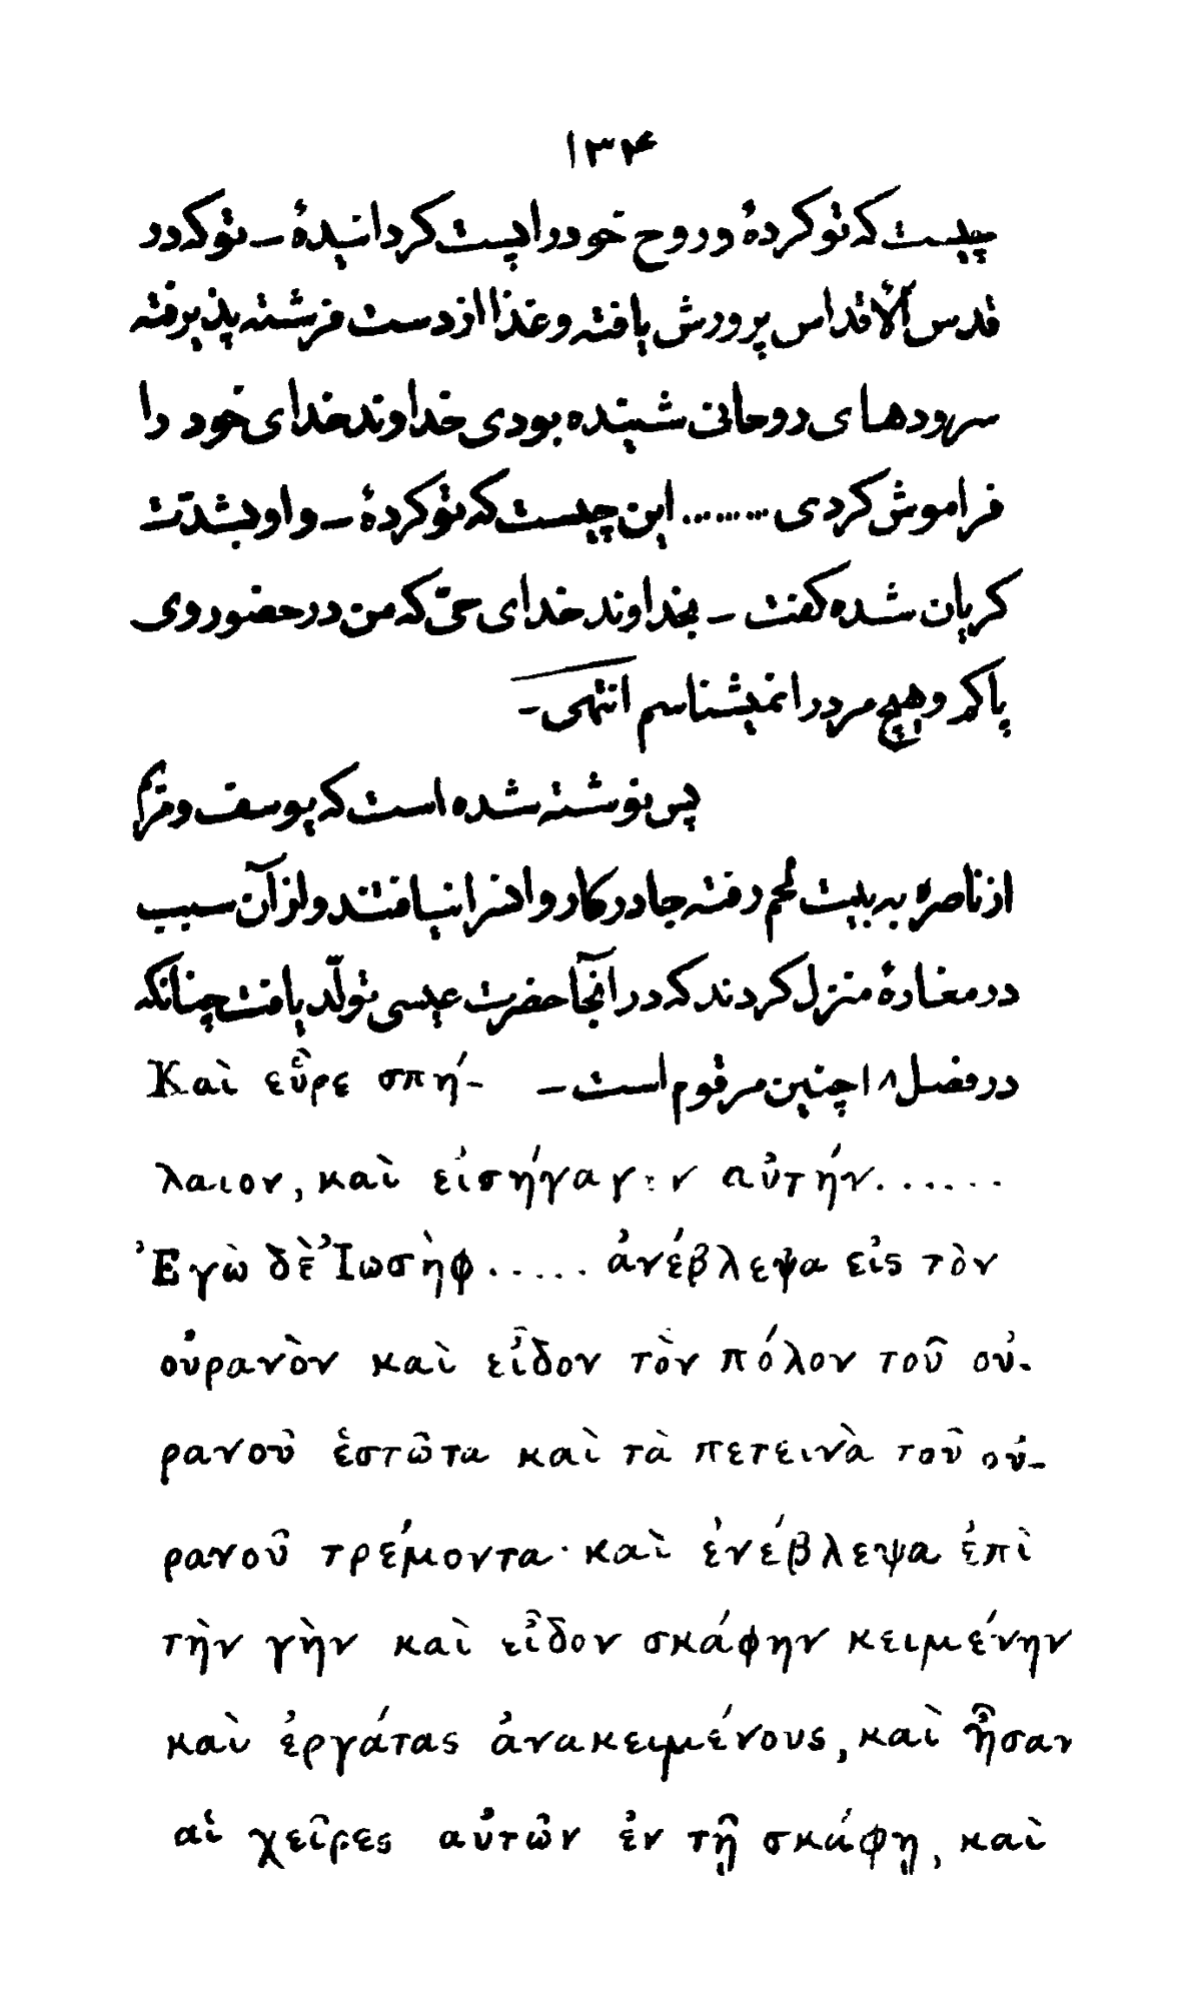 ۱۳۴
چیست که تو کردهٔ و روح خود را پست کردانیدهٔ ــ تو که در
قدس الاقداس پرورش یافته و غذا از دست فرشته پذیرفته
سرودهای روحانی شنیده بودی خداوند خدای خود را
فراموش کردی ......... این چیست که تو کردهٔ ــ و او بشدّت
کریان شده کفت ــ بخداوند خدای حیّ که من در حضور وی
پاکم و هیچ مرد را نمیشناسم انتهی ــ
پس نوشته شده است که یوسف و مریم
از ناصره به بیت لحم رفته جا در کاروانسرا نیافتند و از آن سبب
در مغارهٔ منزل کردند که در آنجا حضرت عیسی تولّد یافت چنانکه
در فصل ۱۸ چنین مرقوم است ــ Καὶ εὗρε σπή-
λαιον, καὶ εἰσήγαγεν αὐτήν......
Ἐγὼ δὲ Ἰωσὴφ..... ἀνέβλεψα εἰς τὸν
οὐρανὸν καὶ εἶδον τὸν πόλον τοῦ οὐ-
ρανοῦ ἑστῶτα καὶ τὰ πετεινὰ τοῦ οὐ-
ρανοῦ τρέμοντα· καὶ ἐνέβλεψα ἐπὶ
τὴν γὴν καὶ εἶδον σκάφην κειμένην
καὶ ἐργάτας ἀνακειμένους, καὶ ἦσαν
αἱ χεῖρες αὐτῶν ἐν τῇ σκάφῃ, καὶ